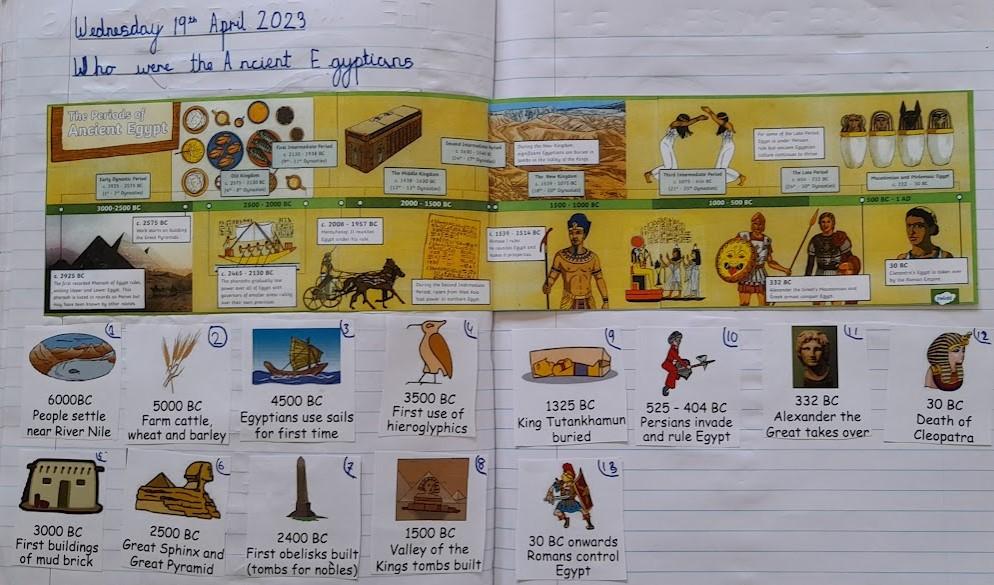 Wednesday 19th April 2023
Who were the Ancient Egyptians
The Periods of
Ancient Egypt
Early Dynastic Period
First Intermediate Period
Old Kingdom
The Middle Kingdom
Second Intermediate Period
During the New Kingdom,
significant Egyptians are buried in
tombs in the Valley of the Kings.
The New Kingdom
Third Intermediate Period
For some of the Late Period,
Egypt is under Persian
rule but ancient Egyptian
culture continues to thrive.
The Late Period
Macedonian and Ptolemaic Egypt
c. 332 - 30 BC
3000-2500 BC
2500 - 2000 BC
2000 - 1500 BC
1500 - 1000 BC
1000 - 500 BC
500 BC - 1 AD
c. 2575 BC
Work starts on building
the Great Pyramids.
c. 2925 BC
The first recorded Pharaoh of Egypt rules,
uniting Upper and Lower Egypt. This
pharaoh is listed in records as Menes but
may have been known by other names.
c. 2465 - 2130 BC
The pharaohs gradually lose
power over all of Egypt with
governors of smaller areas ruling
over their own provinces.
c. 2008 - 1957 BC
Mentuhotep II reunites
Egypt under his rule.
During the Second Intermediate
Period, rulers from West Asia
had power in northern Egypt.
c. 1539 - 1514 BC
Ahmose I rules.
He reunites Egypt and
makes it prosperous.
332 BC
Alexander the Great's Macedonian and
Greek armies conquer Egypt.
30 BC
Cleopatra's Egypt is taken over
by the Roman Empire.
twinkl
1
6000BC
People settle
near River Nile
2
5000 BC
Farm cattle,
wheat and barley
3
4500 BC
Egyptians use sails
for first time
4
3500 BC
First use of
hieroglyphics
9
1325 BC
King Tutankhamun
buried
10
525 - 404 BC
Persians invade
and rule Egypt
11
332 BC
Alexander the
Great takes over
12
30 BC
Death of
Cleopatra
5
3000 BC
First buildings
of mud brick
6
2500 BC
Great Sphinx and
Great Pyramid
7
2400 BC
First obelisks built
(tombs for nobles)
8
1500 BC
Valley of the
Kings tombs built
13
30 BC onwards
Romans control
Egypt